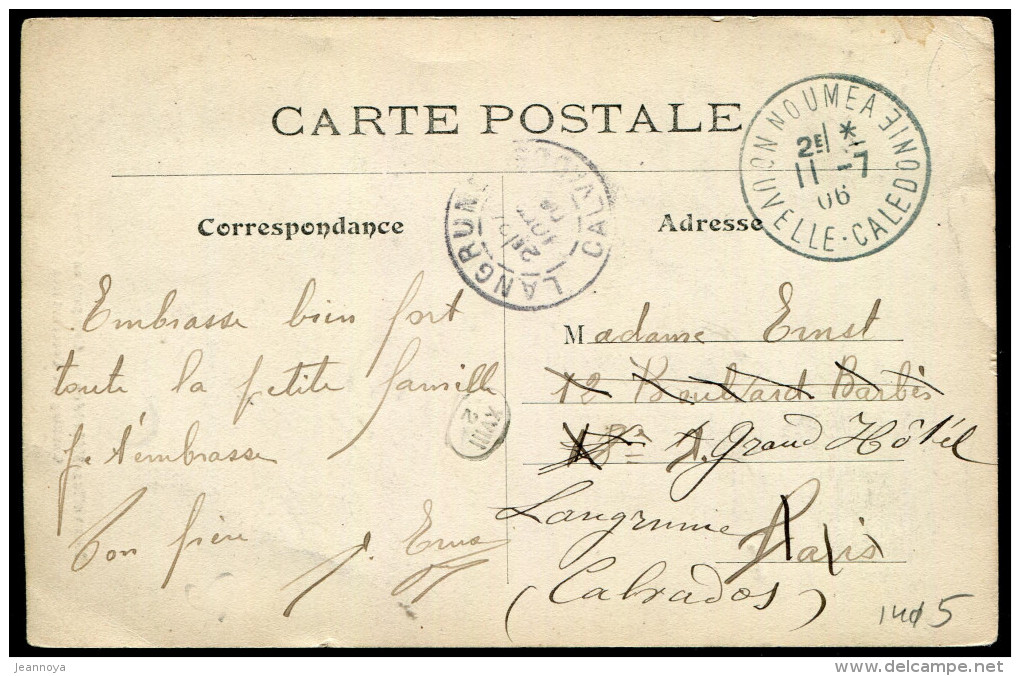 CARTE POSTALE
NOUMEA
NOUVELLE-CALEDONIE
2E *
11 -7
06
LANGRUNE
CALVADOS
Correspondance
Adresse
Embrasse bien fort
toute la petite famille
je t'embrasse
Ton frère
J. Erns
XVIII
2
Madame Ernst
12 Boulvard Barbès
Grand Hôtél
Langrune
Paris
(Calvados)
5
jeannoya
www.delcampe.net